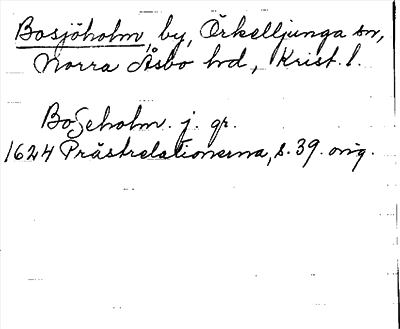 Bosjöholm, by, Örkelljunga sn,
Norra Åsbo hd, Krist. l.
Boſeholm. j. gr.
1624 Prästrelationerna, s. 39. orig.